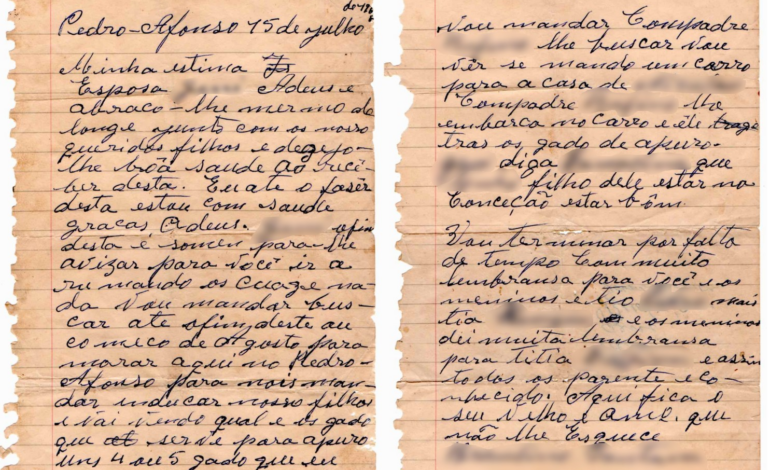 de 19
Pedro-Afonso 15 de julho
Minha estima
Esposa Adeus e
abraço-lhe mermo de
longe junto com os nosso
queridos filhos e degejo-
lhe bôa saude ao reci-
ber desta. Eu ate o faser
desta estou com saude
graças, Adeus. ofin
desta é somen, para-lhe
avizar para você ir a
ru mando os cuaze na-
da vou mandar bus-
car ate ofin, deste au
começo de Agosto para
morar aqui no Pedro-
Afonso para nois man-
dar inducar nosso filhos
e vai vendo qual e os gado
que serve para apuro
uns 4 au 5 gado que eu
Vou mandar Compadre
lhe buscar vou
vêr se mando um carro
para a casa de
Compadre lhe
embarca no carro e êle
tras os gado de apuro.
diga que
filho dele estár na
Conceção estar bôm
Vou terminar por falta
de tempo Com muito
lembransa para você e os
meninos e tio mais
tia e os meninos
dei muita lembransa
para titia e assin
todos os parente e co-
nhecido. Aqui fica o
seu velho e que
não lhe Esquece